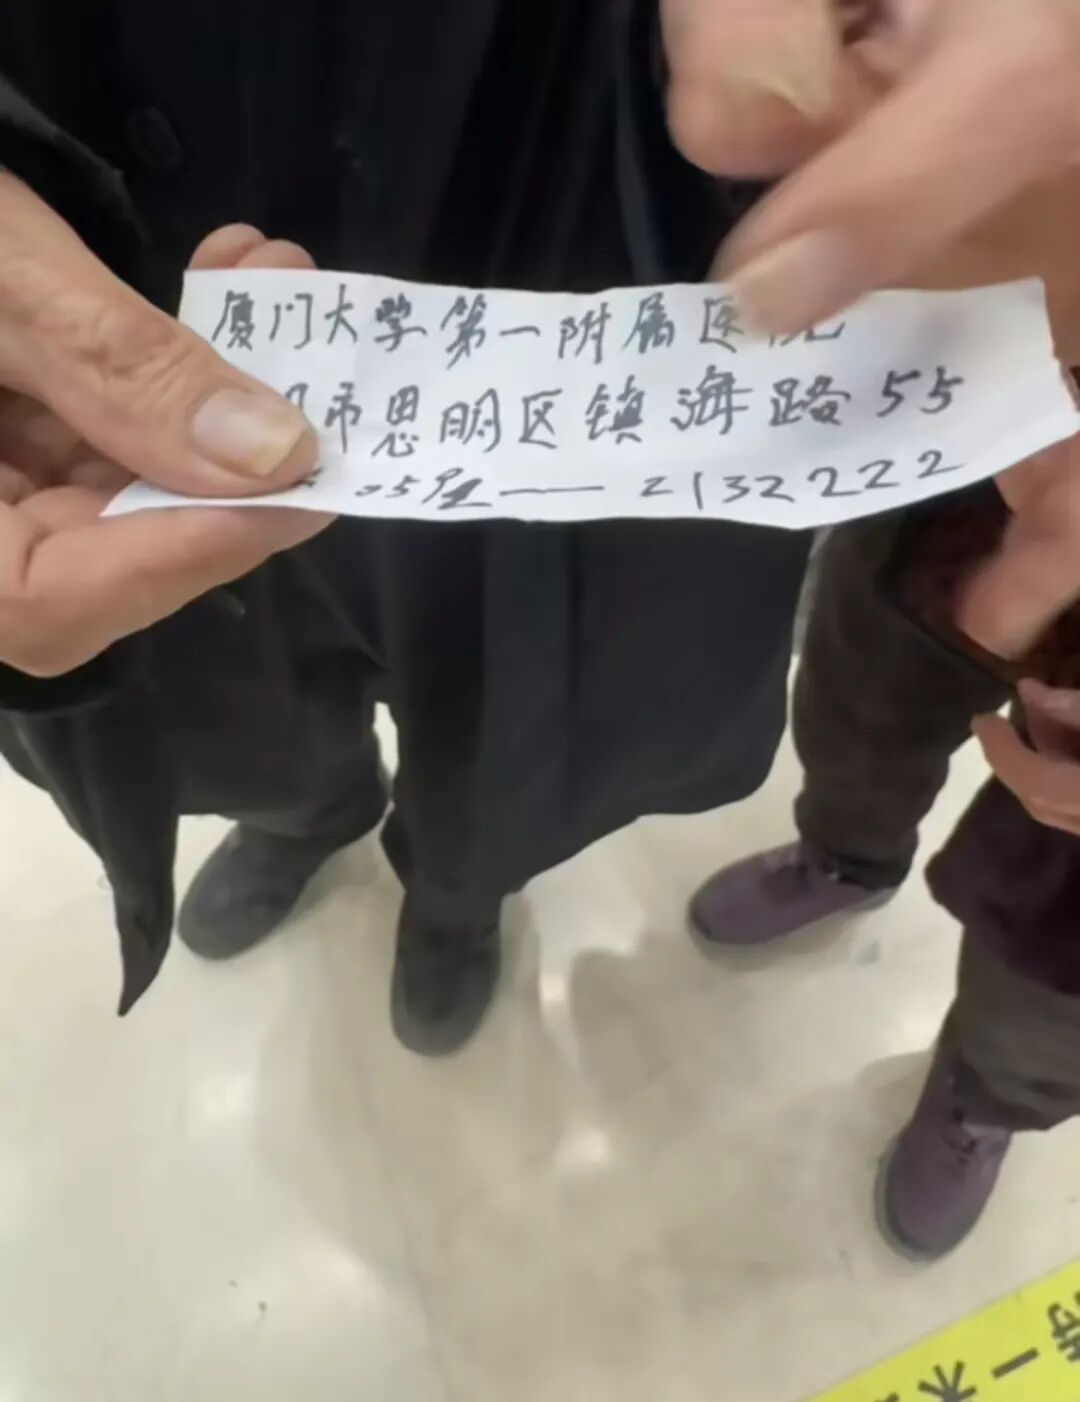 厦门大学第一附属医院
市思明区镇海路55
05—2132222
米一